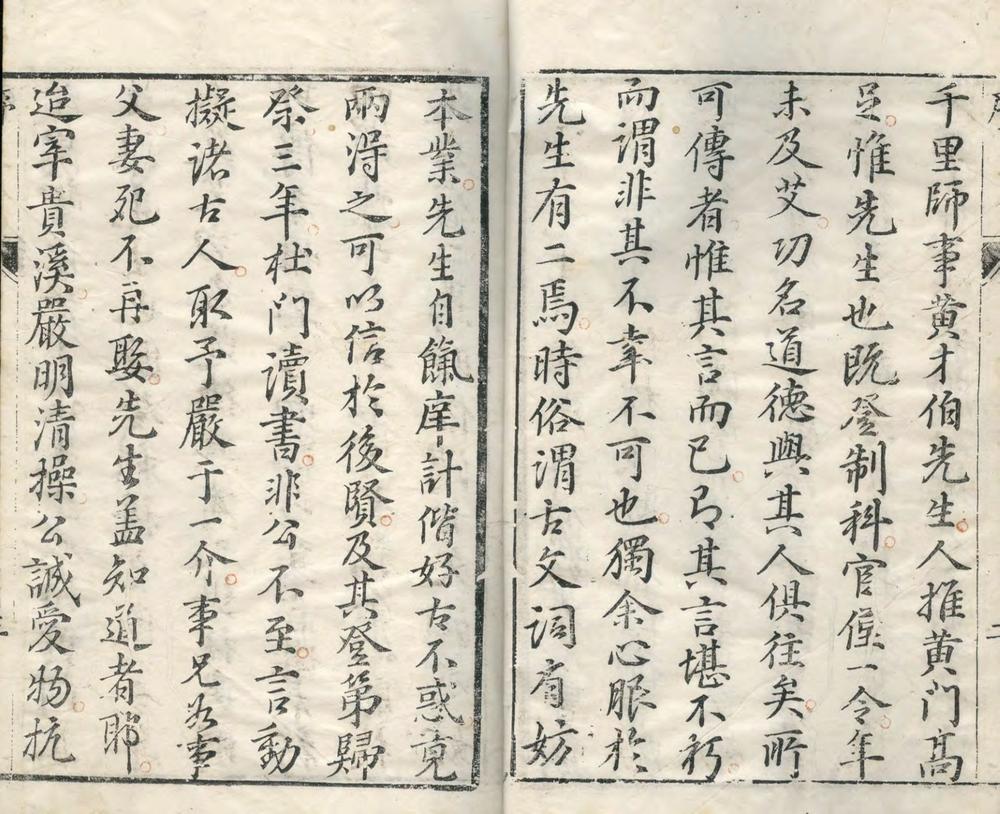 千里師事黄才伯先生人推黄門高
足惟先生也既登制科官僅一令年
未及艾功名道德與其人俱往矣所
可傳者惟其言而已乃其言堪不朽
而謂非其不幸不可也獨余心服於
先生有二焉時俗謂古文詞有妨
本業先生自餼庠計偕好古不惑竟
兩得之可以信於後賢及其登第歸
祭三年杜門讀書非公不至言動
擬諸古人取予嚴于一介事兄為事
父妻死不再娶先生盖知道者耶
迨宰貴溪嚴明清操公誠愛物抗